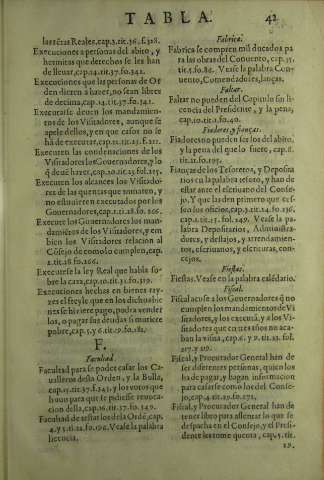 TABLA.
42
las tres Reales, cap.3. tit.36. f.328.
Execuciones a personas del abito, y
hermitas que derechos se les han
de lleuar, cap.14. tit.37. fo.342.
Execuciones que las personas de Or
den dieren a hazer, no sean libres
de decima, cap.14. tit.37. fo.341.
Executarse deuen los mandamien-
tos de los Visitadores, aunque se
apele dellos, y en que casos no se
há de executar, cap.11. tit.25. f.212.
Executen las condenaciones de los
Visitadores los Gouernadores, y lo
q̃ deue hazer, cap.10. tit.25. fol.215.
Executen los alcances los Visitado-
res de las quentas que tomaren, y
no estuuieren executados por los
Gouernadores, cap.1. tit.28. fo.266.
Executen los Gouernadores los man-
damiẽtos de los Visitadores, y em
bien los Visitadores relacion al
Cõsejo de como lo cumplen, cap.2.
tit.28. fo.266.
Executese la ley Real que habla so-
bre la caxa, cap.10. tit. f.319.
Execuciones hechas en bienes ray-
zes el freyle, que en los dichos bie
nes se hiziere pago, podra vender
los, o pagar sus deudas si muriete
pobre, cap.5. y 6. tit.19. fo.182.
F.
Facultad.
Facultad para se poder casar los Ca-
ualleros desta Orden, y la Bulla,
cap.15. tit.37. f.343. y los votos que
huuo para que se pidiesse reuoca
cion della, cap.16. tit.37. fo.349.
Facultad de testar los desta Ordẽ, cap.
4. y 5. tit.22. fo.196. Vease la palabra
licencia.
Fabrica.
Fabrica se compren mil ducados pa
ra las obras del Conuento, cap.35.
tit.5. fo.82. Vease la palabra Con-
uento, Comendadores, lanças.
Faltar.
Faltar no pueden del Capitulo sin li-
cencia del Presidente, y la pena,
cap.10. tit.1. fo.40.
Fiadores, y fianças.
Fiadores no pueden ser los del abito,
y la pena del que lo fuere, cap.8.
tit.21. fo.195.
Fianças de los Tesoreros, y Deposita
rios en la palabra tesoro, y han de
estar ante el escriuano del Conse-
jo. Y que las den primero que cer-
sen los oficios, cap.3. tit.24. fo.236.
cap.2. tit.25. fol.249. Vease la pa-
labra Depositarios, Administra-
dores, y destajos, y arrendamien-
tos, escriuanos, y escrituras, con-
cejos.
Fiestas.
Fiestas. Vease en la palabra calẽdario.
Fiscal.
Fiscal acuse a los Gouernadores q̃ no
cumplen los mandamientos de Vi
sitadores, y los executã, y a los Vi-
sitadores que en tres años no aca-
ban la visita, cap.6. y 9. tit.23. fol.
217. y 219.
Fiscal, y Procurador General han de
ser diferentes personas, quien los
ha de pagar, y hagan informacion
para casarse como los del Conse-
jo, cap.4. tit.29. fo.271.
Fiscal, y Procurador General han de
tener libro para assentar lo que se
despacha en el Consejo, y el Presi-
dente les tome quenta, cap.5. tit.
29.